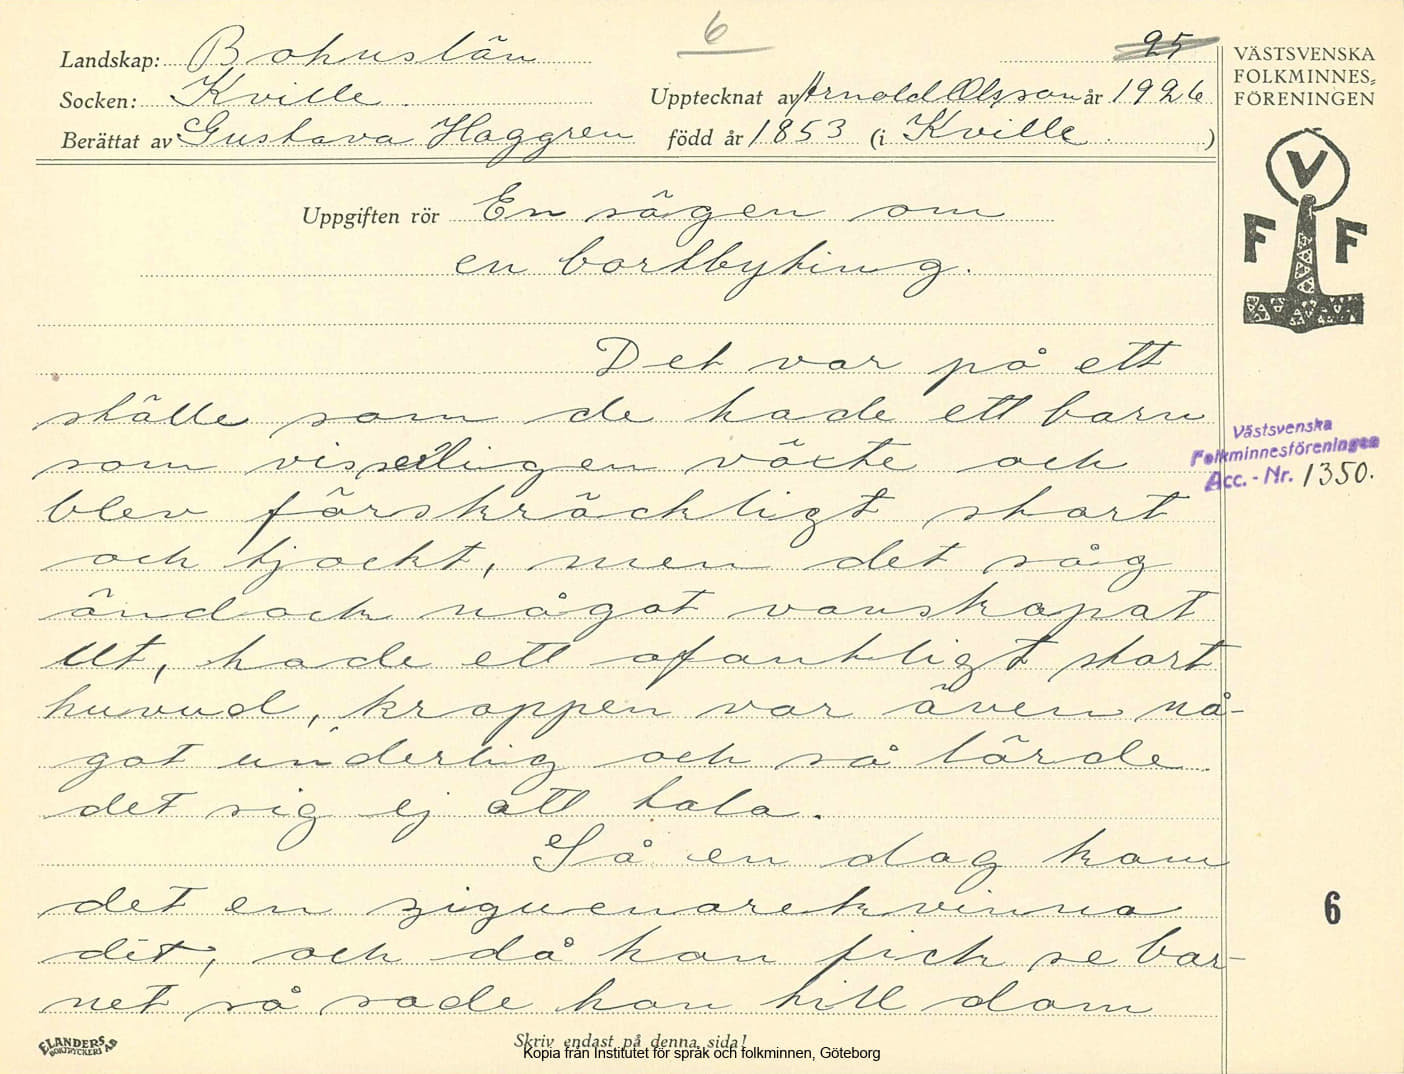 6
25
Landskap: Bohuslän
Socken: Kville. Upptecknat av Arnold Olsson år 1926
Berättat av Gustava Haggren född år 1853 (i Kville.)
VÄSTSVENSKA
FOLKMINNES-
FÖRENINGEN
V
F F
Uppgiften rör En sägen om
en bortbyting.
Det var på ett
ställe som de hade ett barn
som visserligen växte och
blev förskräckligt stort
och tjockt, men det såg
ändock något vanskapat
ut, hade ett ofantligt stort
huvud, kroppen var även nå-
got underlig och så lärde
det sig ej att tala.
Så en dag kom
det en ziguenarekvinna
dit, och då hon fick se bar-
net så sade hon till dom
Västsvenska
Folkminnesföreningen
Acc.-Nr. 1350.
6
ELANDERS
BOKTRYCKERI AB
Skriv endast på denna sida!
Kopia från Institutet för språk och folkminnen, Göteborg